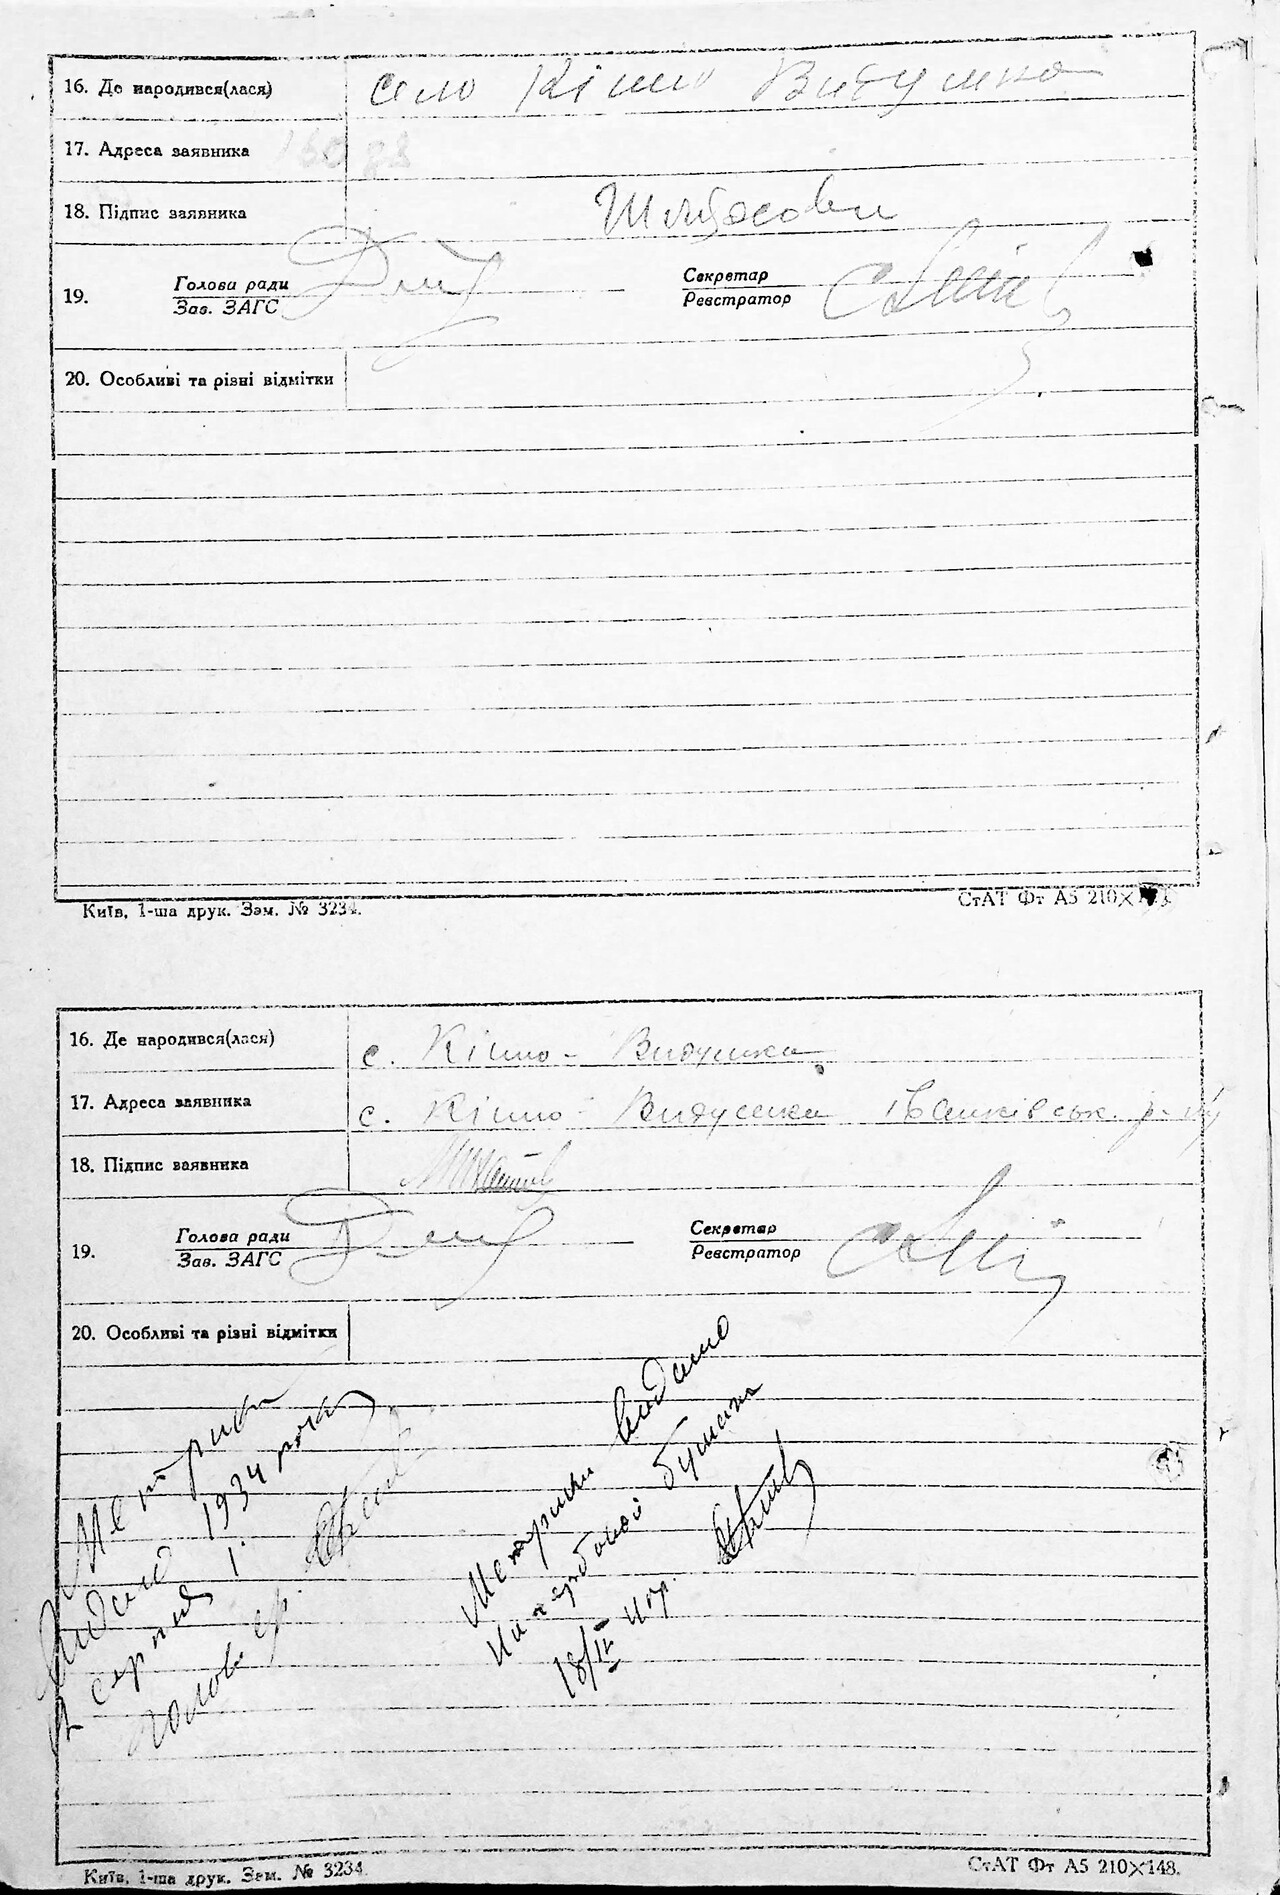 16. Де народився(лася) село Кішо Видумка
17. Адреса заявника
18. Підпис заявника
19. Голова ради Секретар
Зав. ЗАГС Реєстратор
20. Особливі та різні відмітки
Київ, 1-ша друк. Зам. № 3234.
СтАТ Фт А5 210×
16. Де народився(лася) с. Кішо - Видумка
17. Адреса заявника с. Кішо - Видумка Іванківськ. р-ну
18. Підпис заявника
19. Голова ради Секретар
Зав. ЗАГС Реєстратор
20. Особливі та різні відмітки
Метрика
видано 1934 року
серпня 1.
голова ср.
Метрики видано
на гербовой бумаги
18/IV 41р.
Київ, 1-ша друк. Зам. № 3234
СтАТ Фт А5 210×148.